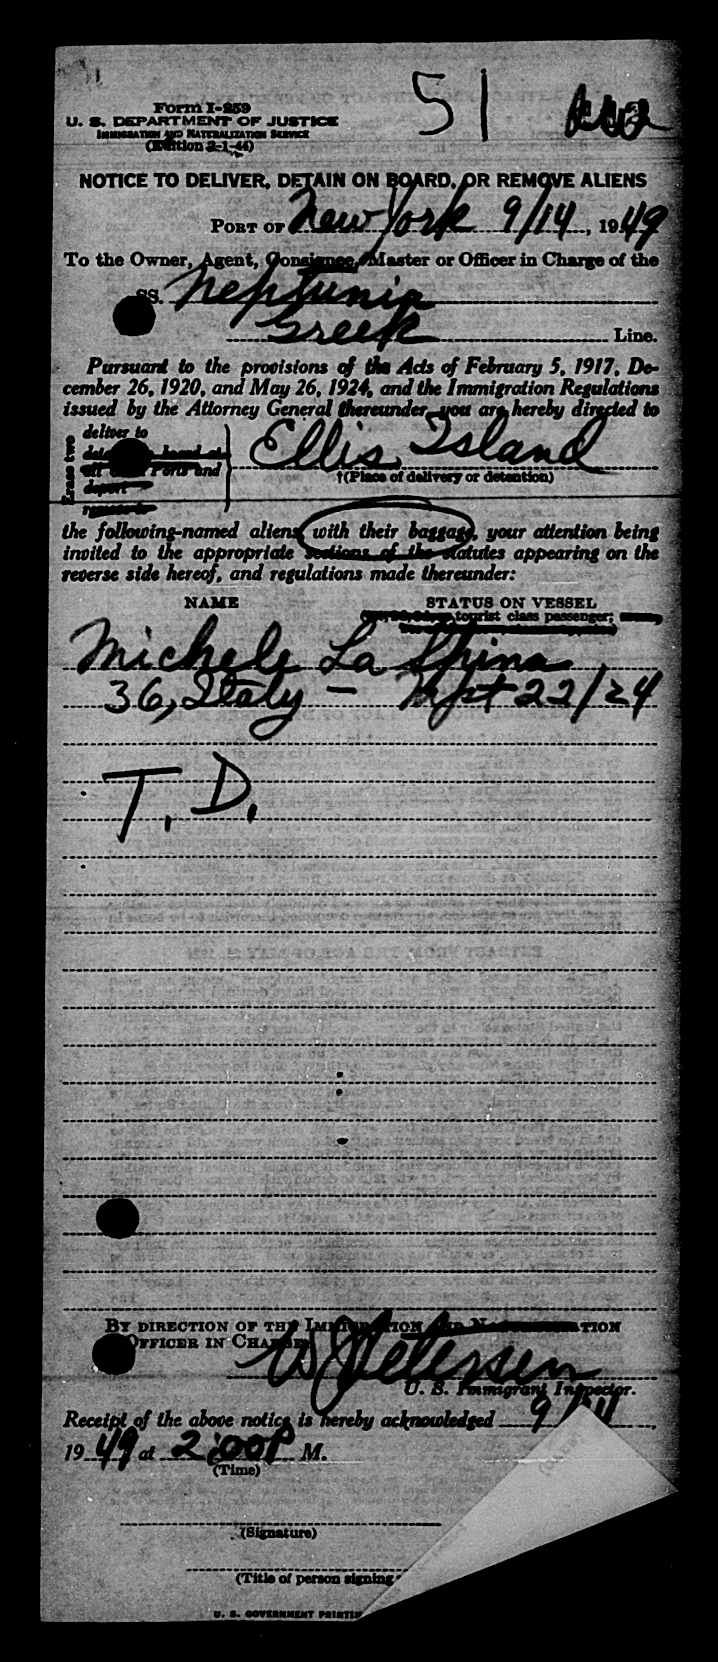 51
Form I-259
U. S. DEPARTMENT OF JUSTICE
IMMIGRATION AND NATURALIZATION SERVICE
(Edition 2-1-44)
NOTICE TO DELIVER, DETAIN ON BOARD, OR REMOVE ALIENS
PORT OF New York 9/14, 1949
To the Owner, Agent, Consignee, Master or Officer in Charge of the
SS. Neptunia
Greek Line.
Pursuant to the provisions of the Acts of February 5, 1917, De-
cember 26, 1920, and May 26, 1924, and the Immigration Regulations
issued by the Attorney General thereunder, you are hereby directed to
Erase two
deliver to
Ports and
deport
Ellis Island
†(Place of delivery or detention)
the following-named aliens, with their baggage, your attention being
invited to the appropriate sections of the statutes appearing on the
reverse side hereof, and regulations made thereunder:
NAME STATUS ON VESSEL
tourist class passenger;
Michele La Spina
36, Italy - 22/24
T. D.
BY DIRECTION OF THE IMMIGRATION AND NATURALIZATION
OFFICER IN CHARGE
W Petersen
U. S. Immigrant Inspector.
Receipt of the above notice is hereby acknowledged 9/14,
1949 at 2:00 P M.
(Time)
(Signature)
(Title of person signing
U. S. GOVERNMENT PRINTIN